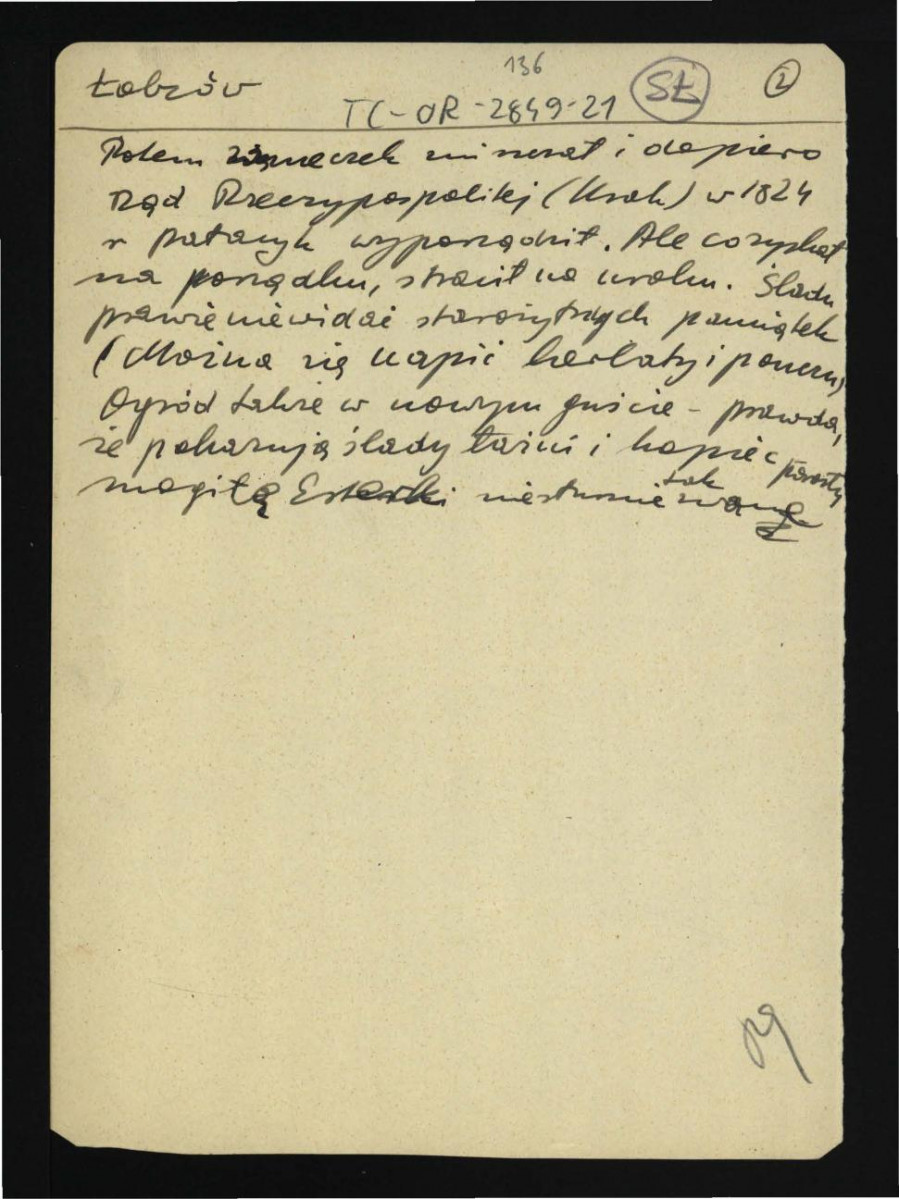 136
Łobzów
TC-OR-2849-21
SŁ
2
Potem zameczek niszczał i dopiero
rząd Rzeczypospolitej (Krak) w 1824
r pałacyk wyporządził. Ale co zyskał
na porządku, stracił na uroku. Śladu
prawie nie widać starożytnych pamiątek
(Można się napić herbaty i ponczu)
Ogród także w nowym guście - prawda,
że pokazują ślady łaźni i kopiec porosły
mogiłą Esterki niesłusznie tak zwaną